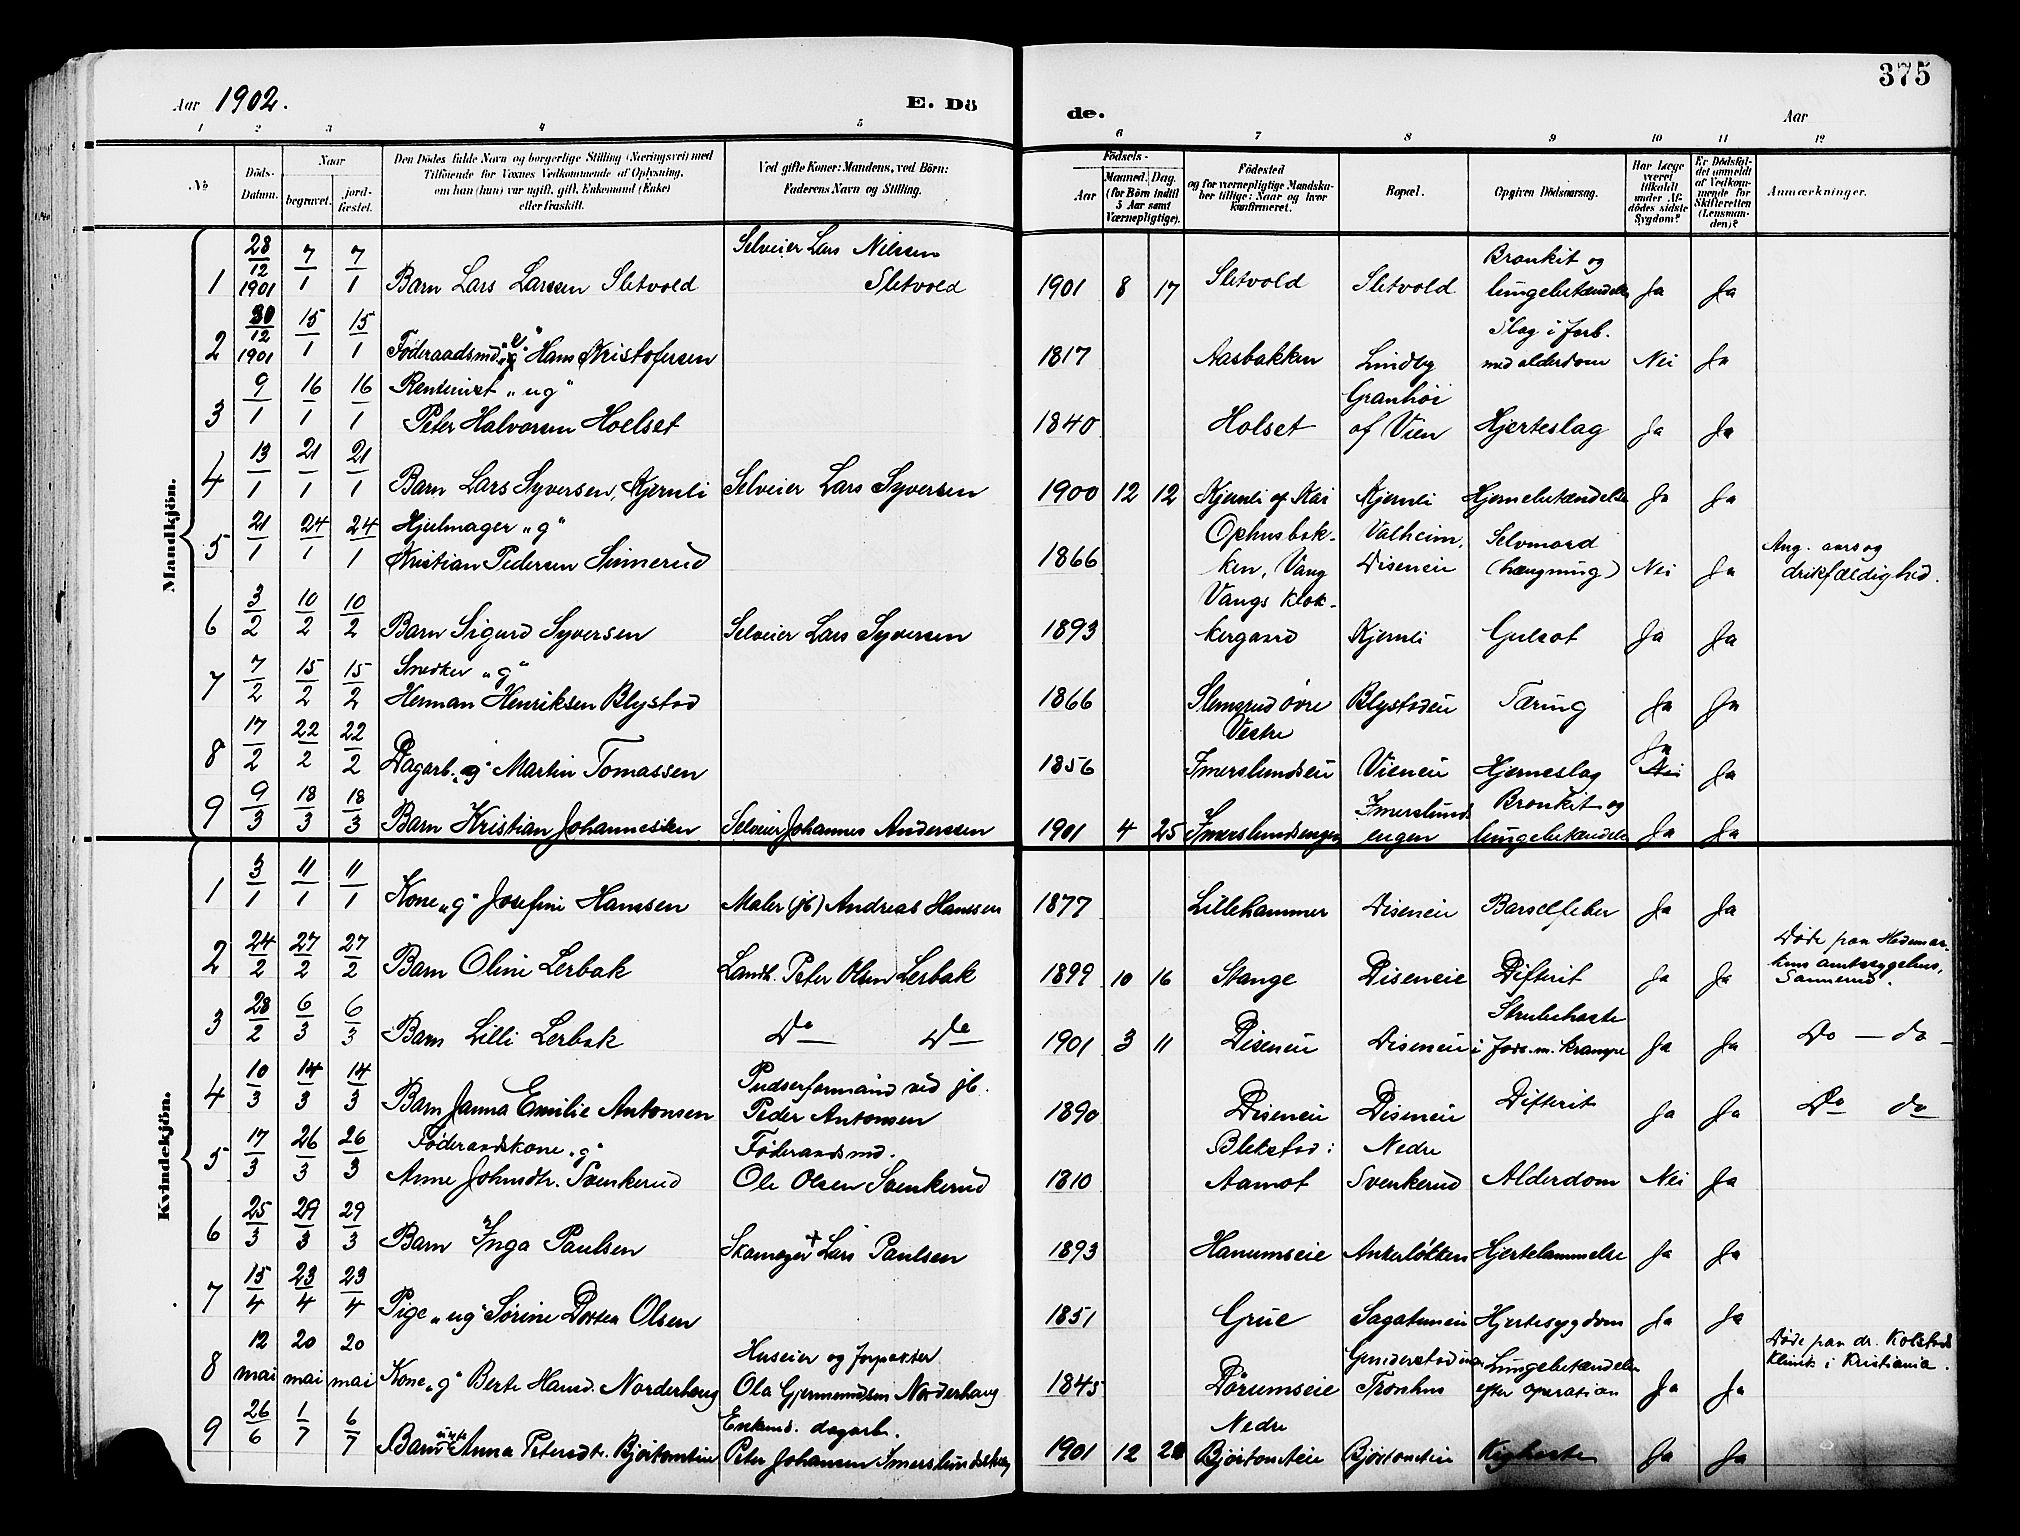 375
Aar 1902. E. Dö de. Aar
1 2 3 4 5 6 7 8 9 10 11 12
No
Döds-Datum.
Naar
begravet.
jord-fæstet.
Den Dödes fulde Navn og borgerlige Stilling (Næringsvei) med
Tilföiende for Voxnes Vedkommende af Oplysning,
om han (hun) var ugift, gift, Enkemand (Enke)
eller fraskilt.
Ved gifte Koner: Mandens, ved Börn:
Faderens Navn og Stilling.
Födsels-
Aar
Maaned. Dag.
(for Börn indtil
5 Aar samt
Værnepligtige).
Födested
og for værnepligtige Mandska-
ber tillige: Naar og hvor
konfirmeret.
Bopæl.
Opgiven Dödsaarsag.
Har Læge
været
tilkaldt
under Af-
dödes sidste
Sygdom?
Er Dödsfal-
det anmeldt
af Vedkom-
mende for
Skifteretten
(Lensman-
den)?
Anmærkninger.
Mandkjön.
1 28/12 1901 7/1 7/1 Barn Lars Larssen Sletvold Selveier Lars Nilssen Sletvold 1901 8 17 Sletvold Sletvold Bronkit og lungebetændelse Ja Ja
2 30/12 1901 15/1 15/1 Føderaadsmd. "e" Hans Kristofersen 1817 Aasbakken Lindby Slag i forb. med alderdom Nei Ja
3 9/1 16/1 16/1 Rentenist "ug" Peter Halvorsen Hoelset 1840 Holset Granhøi af Vien Hjerteslag Ja Ja
4 13/1 21/1 21/1 Barn Lars Syversen, Kjernli Selveier Lars Syversen 1900 12 12 Kjernli af Kai Kjernli Hjernebetændelse Ja Ja
5 21/1 24/1 24/1 Hjulmager "g" Kristian Pedersen Sinnerud 1866 Ophusbak-ken, Vang Valheim, Diseneie Selvmord (hængning) Nei Ja Ang. aarsag drikfældighed.
6 3/2 10/2 10/2 Barn Sigurd Syversen Selveier Lars Syversen 1893 Vangs klok-kergaard Kjernli Gulsot Ja Ja
7 7/2 15/2 15/2 Snedker "g" Herman Henriksen Blystad 1866 Slemsrud øvre Blystadeie Tæring Ja Ja
8 17/2 22/2 22/2 Dagarb. "g" Martin Tomassen 1856 Vestre Imerslundseie Vieneie Hjerneslag Ja Ja
9 9/3 18/3 18/3 Barn Kristian Johannessen Selveier Johannes Anderssen 1901 4 25 Imerslundsengen Imerslunds engen Bronkit og lungebetændelse Ja Ja
Kvindekjön.
1 3/1 11/1 11/1 Kone "g" Josefine Hanssen Maler (jb) Andreas Hanssen 1877 Lillehammer Diseneie Barselfeber Ja Ja
2 24/2 27/2 27/2 Barn Oline Lerbak Landh. Peter Olsen Lerbak 1899 10 16 Stange Diseneie Difterit Ja Ja Døde paa Hedemar-kens amtssygehus, Sannerud.
3 28/2 6/3 6/3 Barn Lilli Lerbak Do Do 1901 3 11 Diseneie Diseneie Strubehoste i forb. m. krampe Ja Ja Do — do —
4 10/3 14/3 14/3 Barn Janna Emilie Antonsen Pudserformand ved jb. Peder Antonsen 1890 Diseneie Diseneie Difterit Ja Ja Do do
5 17/3 26/3 26/3 Føderaadskone "g" Anne Johnsdtr. Svenkerud Føderaadsmd. Ole Olsen Svenkerud 1810 Blekstad i Aamot Nedre Svenkerud Alderdom Nei Ja
6 25/3 29/3 29/3 Barn Inga Paulsen Skomager + Lars Paulsen 1893 Hanumseie Ankerløkken Hjertelammelse Ja Ja
7 15/4 23/4 23/4 Pige "ug" Sørine Dortea Olsen 1851 Grue Sagatuneie Hjertesygdom Ja Ja
8 12 mai 20 mai 20 mai Kone "g" Berte Hansd. Norderhaug Huseier og forpakter Ola Gjermundsen Norderhaug 1845 Dørumseie Gunderstadeie Tronhus Lungebetændelse efter operation Ja Ja Døde paa dr. Kolstads klinik i Kristiania.
9 26/6 1/7 6/7 Barn Anna Petersdtr. Bjørtomteie Enkemd. dagarb. Peter Johansen 1901 12 Nedre Bjørtomteie Bjørtomteie Kighoste Ja Ja